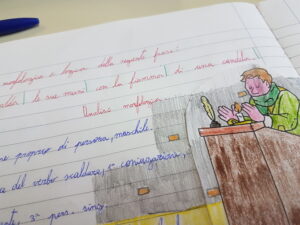 morfologica e logica della seguente frase:
le sue mani | con la fiamma | di una candela.
Analisi morfologica
proprio di persona, maschile.
del verbo scaldare, 1ª coniugazione,
3ª pers. sing.